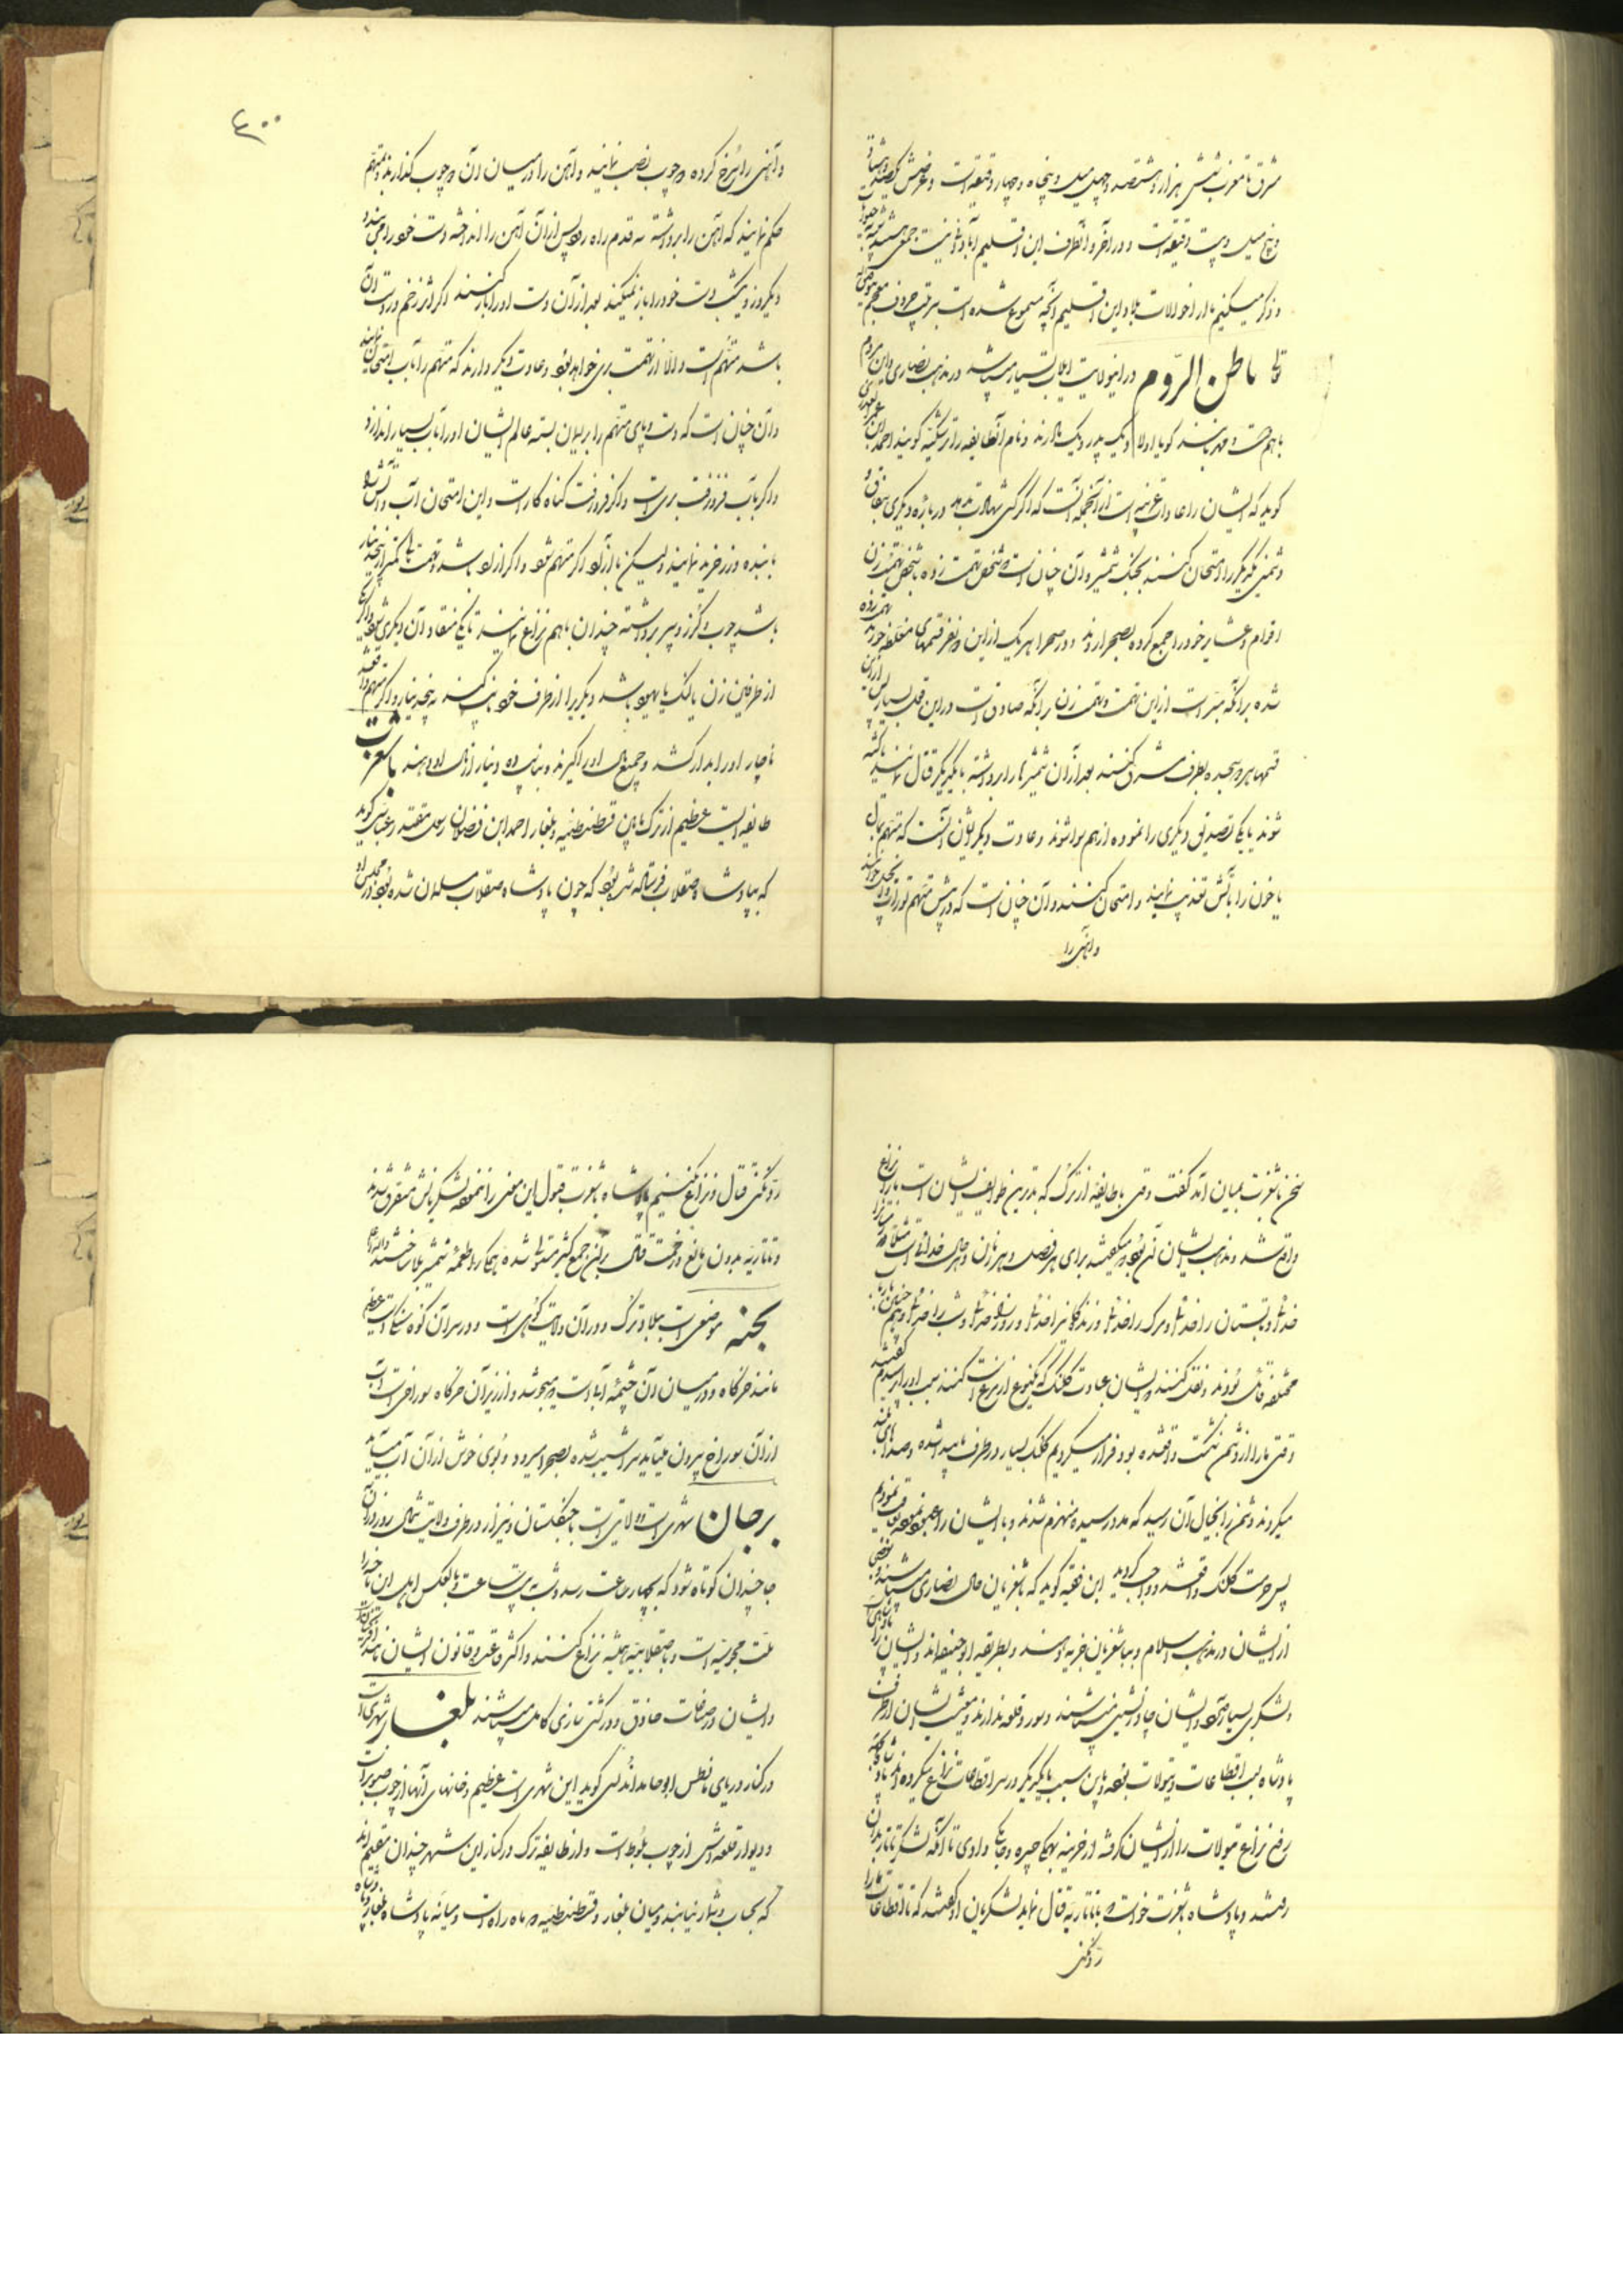 شرق تا مغرب شش هزار و هشتصد و چهل میل و پنجاه و چهار دقیقه است و عرضش یکصد و هشتاد
و پنج میل و بیست دقیقه است و در آخر و آنطرف این اقلیم آبادانی نیست
و ذکر میکنیم ما از احوالات بلاد این اقلیم آنچه مسموع شده است بترتیب حروف معجم
باطن الروم در این ولایت اهل بسیار میباشد در مذهب نصاری و این مردم
با هم دوست و مهربانند گویا اولاد یک پدر و یک مادرند و نام آنطایفه را گویند احمد ابن عمر العذری
گوید که ایشان را عادات غریبه است از آنجمله آنست که اگر کسی شهادت بدهد درباره دیگری بنفاق و
دشمنی یکدیگر را امتحان کنند بجنگ شمشیر و آن چنان است شخص تهمت زده با شخص تهمت زن
اقوام و عشایر خود را جمع کرده بصحرا روند و در صحرا هر یک از این دو نفر قسمهای مغلظه خورند تهمت زده
شده بر آنکه مبرا است از این تهمت و تهمت زن بر آنکه صادق است در این قول پس از این
قسمها هر دو سجده بطرف مشرق کنند بعد از آن شمشیرها را برداشته با یکدیگر قتال نمایند تا کشته
شوند یا یکی تصدیق دیگری را نموده از هم سوا شوند و عادت دیگر ایشان آنست که متهم بمال
یا خون را بآتش تعذیب نمایند و امتحان کنند و آن چنان است که در پیش متهم توراة و انجیل خوانند
و آهنی را
۴۰۰
و آهنی را سرخ کرده دو چوب نصب نمایند و آهن را در میان آن دو چوب گذارند و متهم
حکم نمایند که آهن را برداشته سه قدم راه رود پس از آن آهن را انداخته دست خود را می بندد
دیگر روز و یکشب دست خود را باز نمیکند بعد از آن دست او را باز کنند اگر اثر زخم در دست آن
باشد متهم است والا از تهمت بری خواهد بود و عادت دیگر دارند که متهم را بآب امتحان نمایند
و آن چنان است که دست و پای متهم را بریسمان بسته عالم ایشان او را بآب بسیار اندازد
و اگر بآب فرو نرفت بری است و اگر فرو رفت گناه کار است و این امتحان آب و آتش را
با بنده و زر خرید نمایند ولیکن با آزاد اگر متهم شود و اگر آزاد باشد و تهمت بکمتر از پنجدینار
باشد چوب و گرز و سپر برداشته چندان با هم نزاع نمایند تا یکی منقاد آن دیگری شود و اگر یکی
از طرفین زن یا لنگ یا یهود باشد دیگریرا از طرف خود نایب کنند به پنجدینار و اگر متهم بیفتد
ناچار او را بدار کشند و جمیع مال او را گیرند و بنایب ده دینار از مال او دهند باشغرت
طایفه ایست عظیم از ترک مابین قسطنطنیه و بلغار احمد ابن فضلان رسول مقتدر عباسی گوید
که بپادشاه صقلاب فرستاده شده بود که چون پادشاه صقلاب مسلمان شده بود در مجلس او
سخن باشغرت بمیان آمد گفت وقتی با طایفه از ترک که بدترین طوایف ایشان است ما را نزاع
واقع شد و مذهب ایشان آن بود میگفتند برای هر فصل و هر زمان و هر حال خدائی است
خدائی و تابستان را خدائی و مرگ را خدائی و زندگانیرا خدائی و روز را خدائی و شب را خدائی
مختلفه قائل بودند و نقل کنند که ایشان عبادت کلنگ که یکنوع از مرغ است کنند سبب او را پرسیدم گفتند
وقتی ما را از دشمن شکست واقع شده بود فرار میکردیم کلنگ بسیار در طرف ما پیدا شده و صداها
میکردند دشمن را بخیال آن رسید که مدد رسیده منهزم شدند و ما ایشان را
پس حرمت کلنگ واقعشد و واجب گردید ابن فقیه گوید که باشغریان حال نصاری میباشند و بعضی
از ایشان در مذهب اسلام و بباشغریان جزیه دهند و بطریقه ابوحنیفه اند و ایشان را پادشاهی است
و لشکری بسیار دارد و ایشان چادرنشین میباشند و سور و قلعه ندارند و معیشت ایشان از طرف
پادشاه بسبب اقطاعات و تیولات بوده و باین سبب با یکدیگر در سر اقطاعات نزاع میکرده اند
رفع نزاع تیولات را از ایشان گرفته از خزینه بهمگی جیره و مواجب دادی تا آنکه لشکر تاتار بدان
رفتند و پادشاه باشغرت خواست با تاتاریه قتال نماید لشکریان او گفتند که تا اقطاعات ما را
رد نکنی
رد نکنی قتال و نزاع نکنیم پادشاه باشغرت قبول این معنی را ننموده لشکریانش متفرق شدند
و تاتاریه بدون مانع و زحمت قتال بر این جمع کثیر مستولی شده همگی را طعمه شمشیر بلا ساختند و الله اعلم
بجنه موضعی است ببلاد ترک و در آن ولایت کوهی است و در سر آن کوه سنگی است عظیم
مانند خرگاه و در میان آن چشمه آبی است که میجوشد و از زیر آن خرگاه سوراخی است آب
از آن سوراخ بیرون میآید سراشیب شده بصحرا میرود و بوی خوش از آن آب میآید
برجان شهری است و ولایتی است با جنگلستان و نیزار در طرف ولایت شمالی روز در آن
جا چندان کوتاه شود که بچهار ساعت رسد و شب بیست ساعت و بالعکس اهل این ناحیه را
ملت مجوسیه است و با صقلابیه همیشه نزاع کنند و اکثر وقت و قانون ایشان مانند افرنج است
و ایشان در صناعات حاذق و در کشتی سازی کامل میباشند بلغار شهری است
در کنار دریای مانطس ابوحامد اندلسی گوید این شهری است عظیم و خانهای آنها از چوب صنوبر است
و دیوار قلعه اش از چوب بلوط است و از طایفه ترک در کنار این شهر چندان مقیم اند
که بحساب و شمار نیایند و میان بلغار و قسطنطنیه دو ماه راه است و میانه پادشاه بلغار و پادشاه